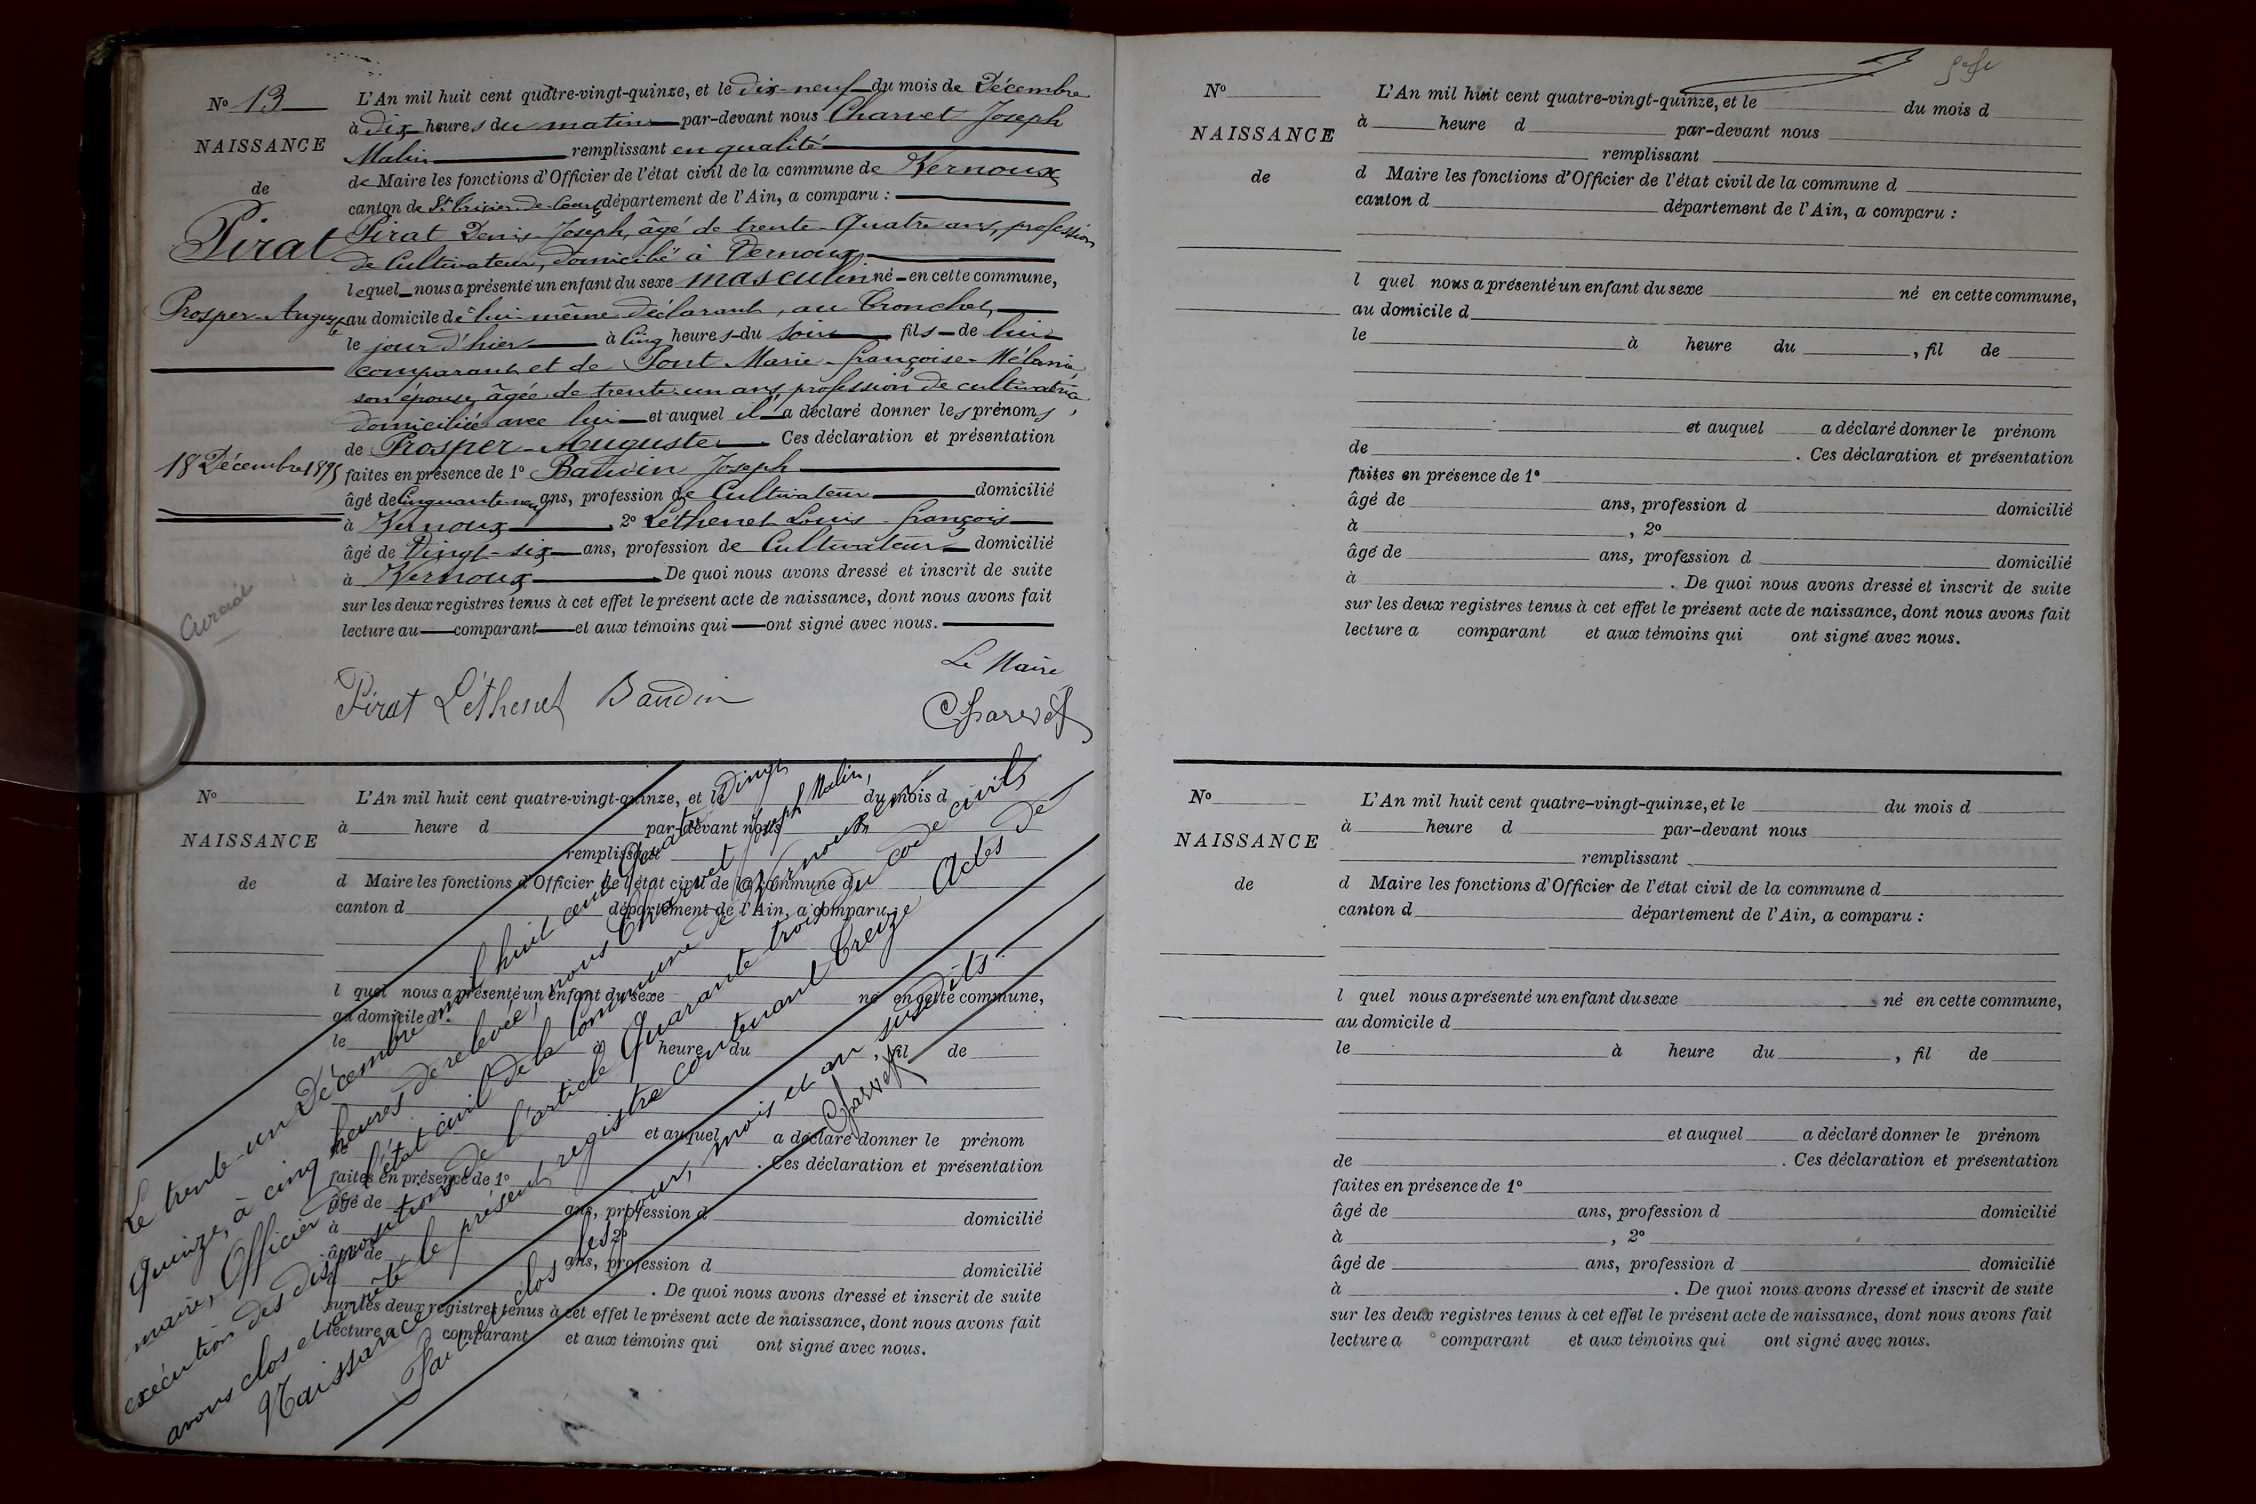 No 13
NAISSANCE
de
Pirat
Prosper-Auguste
18 Décembre 1895
L'An mil huit cent quatre-vingt-quinze, et le dix-neuf du mois de Décembre
à dix heures du matin par-devant nous Charvet Joseph
Malin remplissant en qualité
de Maire les fonctions d'Officier de l'état civil de la commune de Vernoux
canton de St Trivier-de-Courtes département de l'Ain, a comparu :
Pirat Denis-Joseph, âgé de trente-quatre ans, profession
de Cultivateur, domicilié à Vernoux,
lequel nous a présenté un enfant du sexe masculin né en cette commune,
au domicile de lui-même déclarant, au Tronchet,
le jour d'hier à cinq heures du soir fils de lui
comparant et de Pont Marie-Françoise-Mélanie,
son épouse, âgée de trente-un ans, profession de cultivatrice,
domiciliée avec lui et auquel il a déclaré donner les prénoms
de Prosper-Auguste Ces déclaration et présentation
faites en présence de 1o Baudin Joseph
âgé de Cinquante-neuf ans, profession de Cultivateur domicilié
à Vernoux, 2o Léthenet Louis-François
âgé de Vingt-six ans, profession de Cultivateur domicilié
à Vernoux De quoi nous avons dressé et inscrit de suite
sur les deux registres tenus à cet effet le présent acte de naissance, dont nous avons fait
lecture au comparant et aux témoins qui ont signé avec nous.
Le Maire
Pirat Léthenet Baudin Charvet
Curciat
No
NAISSANCE
de
L'An mil huit cent quatre-vingt-quinze, et le du mois d
à heure d par-devant nous
remplissant
d Maire les fonctions d'Officier de l'état civil de la commune d
canton d département de l'Ain, a comparu :
l quel nous a présenté un enfant du sexe né en cette commune,
au domicile d
le à heure du , fil de
et auquel a déclaré donner le prénom
de . Ces déclaration et présentation
faites en présence de 1o
âgé de ans, profession d domicilié
à , 2o
âgé de ans, profession d domicilié
à . De quoi nous avons dressé et inscrit de suite
sur les deux registres tenus à cet effet le présent acte de naissance, dont nous avons fait
lecture a comparant et aux témoins qui ont signé avec nous.
Le trente-un Décembre mil huit cent quatre Vingt
quinze, à cinq heures de relevée, nous Charvet Joseph Malin,
maire, Officier de l'état civil de la Commune de Vernoux, en
exécution des dispositions de l'article quarante trois du code civil,
avons clos et arrêté le présent registre contenant treize Actes de
Naissance
Fait et clos les jour, mois et an susdits.
Charvet
No
NAISSANCE
de
L'An mil huit cent quatre-vingt-quinze, et le du mois d
à heure d par-devant nous
remplissant
d Maire les fonctions d'Officier de l'état civil de la commune d
canton d département de l'Ain, a comparu :
l quel nous a présenté un enfant du sexe né en cette commune,
au domicile d
le à heure du , fil de
et auquel a déclaré donner le prénom
de . Ces déclaration et présentation
faites en présence de 1o
âgé de ans, profession d domicilié
à , 2o
âgé de ans, profession d domicilié
à . De quoi nous avons dressé et inscrit de suite
sur les deux registres tenus à cet effet le présent acte de naissance, dont nous avons fait
lecture a comparant et aux témoins qui ont signé avec nous.
No
NAISSANCE
de
L'An mil huit cent quatre-vingt-quinze, et le du mois d
à heure d par-devant nous
remplissant
d Maire les fonctions d'Officier de l'état civil de la commune d
canton d département de l'Ain, a comparu :
l quel nous a présenté un enfant du sexe né en cette commune,
au domicile d
le à heure du , fil de
et auquel a déclaré donner le prénom
de . Ces déclaration et présentation
faites en présence de 1o
âgé de ans, profession d domicilié
à , 2o
âgé de ans, profession d domicilié
à . De quoi nous avons dressé et inscrit de suite
sur les deux registres tenus à cet effet le présent acte de naissance, dont nous avons fait
lecture a comparant et aux témoins qui ont signé avec nous.